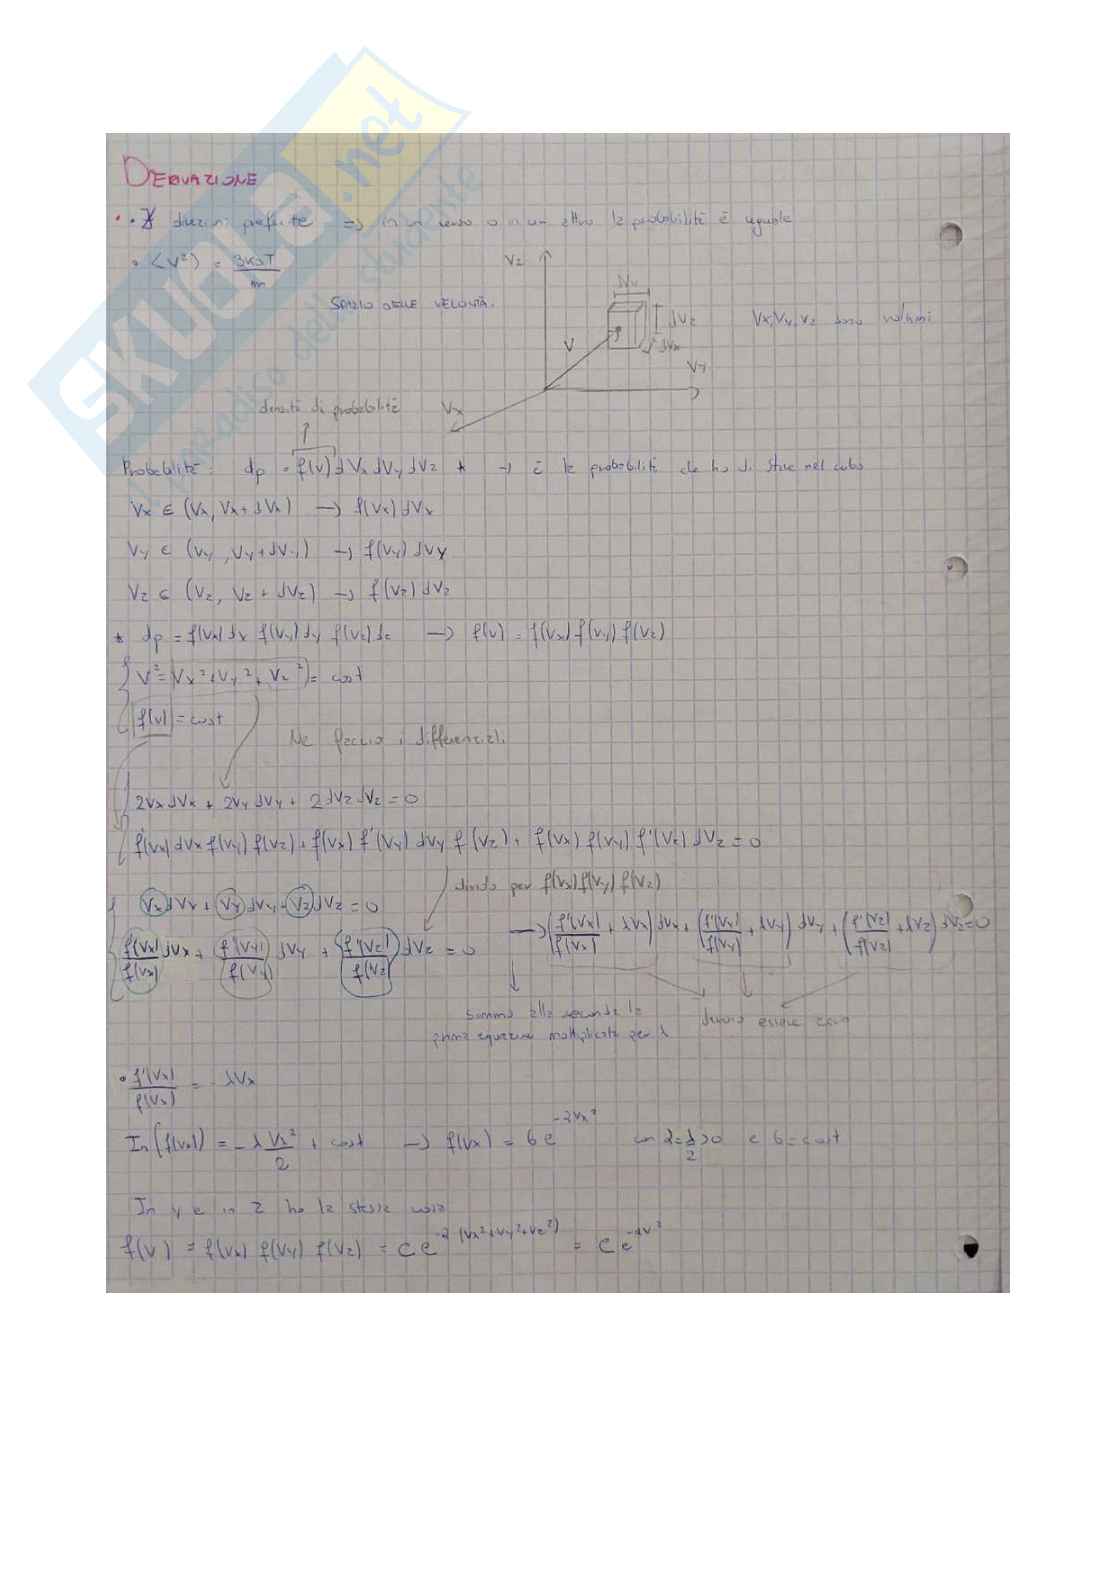 DERIVAZIONE
• ∄ direzioni preferite => in un verso o in un altro la probabilità è uguale
• <v²> = 3KbT/m
SPAZIO DELLE VELOCITÀ.
Vz
dVz
dVx
V
Vy
Vx
Vx, Vy, Vz sono volumi
densità di probabilità
Probabilità: dp = f(v) dVx dVy dVz * → è la probabilità che ho di stare nel cubo
Vx ∈ (Vx, Vx+dVx) → f(Vx)dVx
Vy ∈ (Vy, Vy+dVy) → f(Vy)dVy
Vz ∈ (Vz, Vz+dVz) → f(Vz)dVz
* dp = f(Vx)dx f(Vy)dy f(Vz)dz → f(v) = f(Vx) f(Vy) f(Vz)
V² = Vx²+Vy²+Vz² = cost
f(v) = cost
Ne faccio i differenziali
2Vx dVx + 2Vy dVy + 2dVz dVz = 0
f'(Vx) dVx f(Vy) f(Vz) + f(Vx) f'(Vy) dVy f(Vz) + f(Vx) f(Vy) f'(Vz) dVz = 0
divido per f(Vx)f(Vy)f(Vz)
Vx dVx + Vy dVy + Vz dVz = 0
f'(Vx)/f(Vx) dVx + f'(Vy)/f(Vy) dVy + f'(Vz)/f(Vz) dVz = 0 → (f'(Vx)/f(Vx) + λVx) dVx + (f'(Vx)/f(Vy) + λVy) dVy + (f'(Vz)/f(Vz) + λVz) dVz = 0
Sommo alla seconda la
prima equazione moltiplicata per λ
devono essere zero
• f'(Vx)/f(Vx) = -λVx
ln(f(Vx)) = -λ Vx²/2 + cost → f(Vx) = b e^-αVx² con α = λ/2 >0 e b = cost
In y e in z ho la stessa cosa
f(v) = f(Vx) f(Vy) f(Vz) = C e^-α(Vx²+Vy²+Vz²) = C e^-αV²
SKUOLA.net